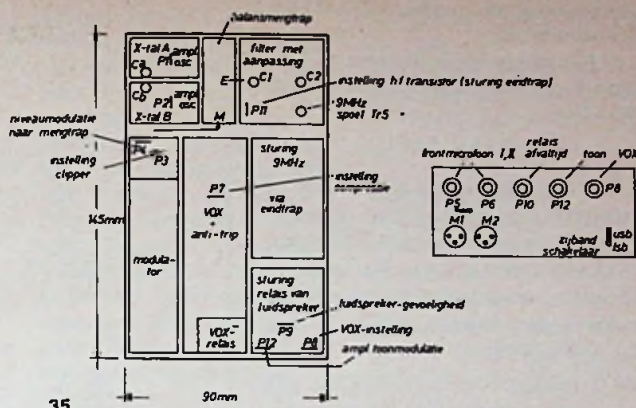 balansmengtrap
X-tal A
ampl
osc
P1
Ca
Cb
P2
ampl
osc
X-tal B
M
filter met
aanpassing
E
C1
C2
P11
instelling hf transistor (sturing eindtrap)
9MHz
spoel Tr5
niveaumodulatie
naar mengtrap
P4
P3
instelling
clipper
145mm
modula-
tor
P7
VOX
+
anti-trip
instelling
sturing
9MHz
via
eindtrap
sturing
relais van
luidspreker
P9
P12
P8
VOX-
relais
luidspreker-gevoeligheid
VOX-instelling
ampl toonmodulatie
90mm
35
frontmicrofoon I, II
relais
afvaltijd
toon
VOX
P5
P6
P10
P12
P8
M1
M2
zijband
schakelaar
usb
lsb